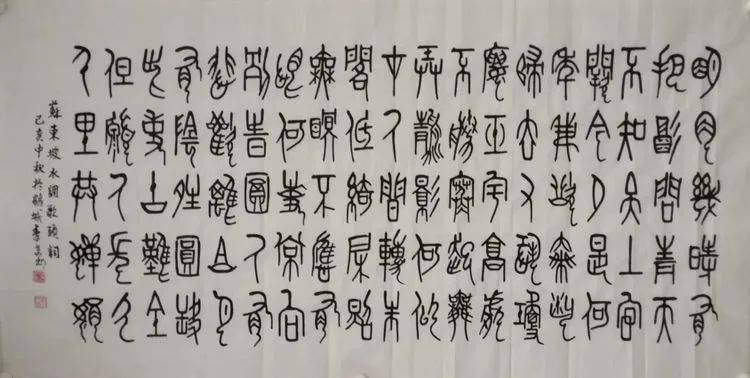 明月幾時有
把酒問青天
不知天上宮
闕今夕是何
年我欲乘風
歸去又恐瓊
樓玉宇高處
不勝寒起舞
弄清影何似
在人間轉朱
閣低綺戶照
無眠不應有
恨何事長向
別時圓人有
悲歡離合月
有陰晴圓缺
此事古難全
但願人長久
千里共嬋娟
蘇東坡水調歌頭詞
己亥中秋於鶴城李